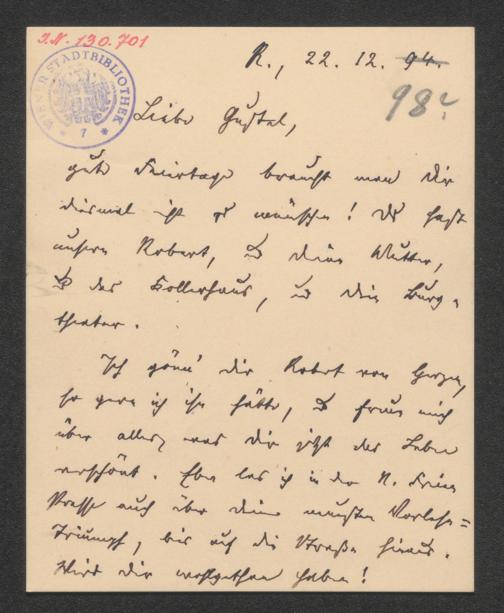 I.N. 130.701
WIENER STADTBIBLIOTHEK
* 7 *
R., 22. 12. 94.
98?
Liebe Gustel,
gute Feiertage braucht man Dir
diesmal nicht zu wünschen! Du hast
unsern Robert, u deine Mutter,
u das Kollerhaus, u dein Burg-
theater.
Ich gönn' dir Robert von Herzen,
so gern ich ihn hätte, u freue mich
über alles, was dir jetzt das Leben
verschönt. Eben las ich in der N. Freien
Presse auch über deine neusten Vorlese-
Triumpf, bis auf die Straße hinaus.
Wird dir wohlgethan haben!